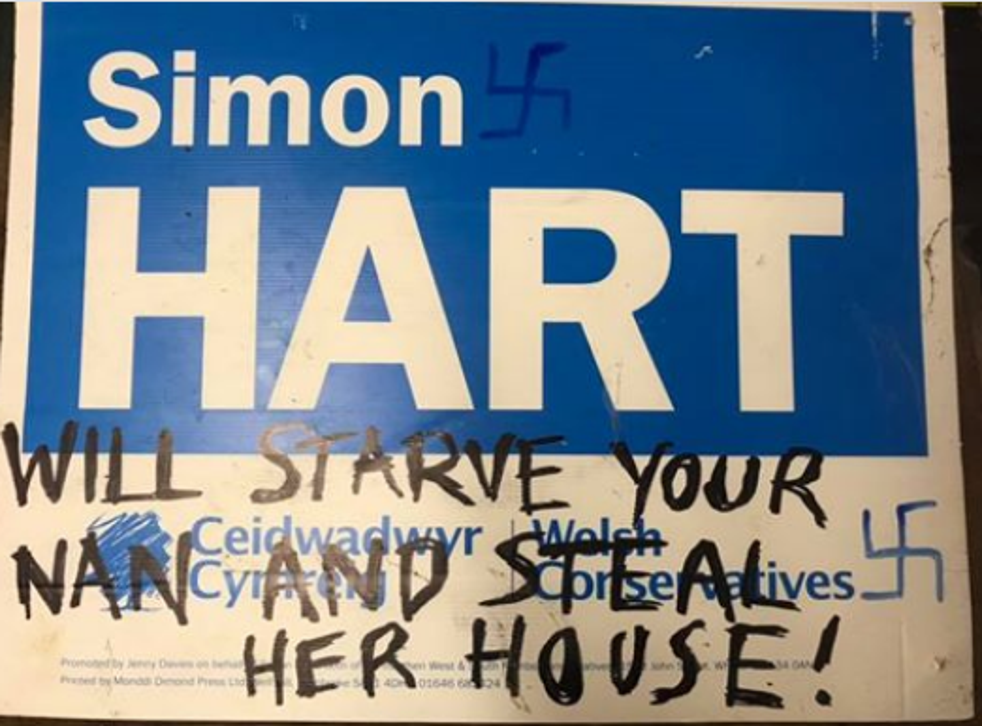 Simon
HART
WILL STARVE YOUR
NAN AND STEAL
HER HOUSE!
Ceidwadwyr Welsh
Cymreig Conservatives
Promoted by Jenny Davies on behalf West &
Printed by Monddi Dimond Press Ltd 01646